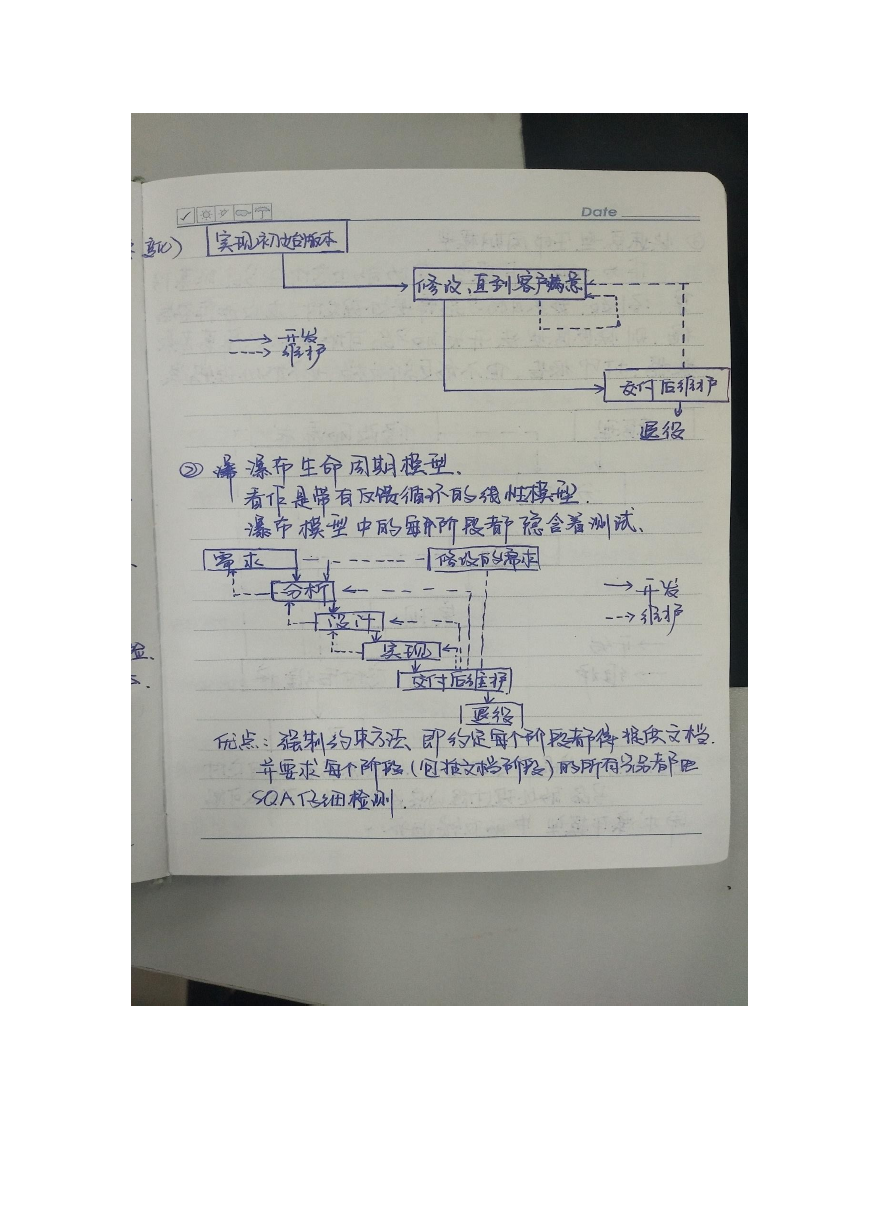 Date
变化)
实现初始版本
修改,直到客户满意
开发
维护
交付后维护
退役
② 瀑布生命周期模型.
看作是带有反馈循环的线性模型.
瀑布模型中的每个阶段都隐含着测试、
需求
修改的需求
分析
开发
设计
维护
实现
交付后维护
退役
优点:强制约束方法、即约定每个阶段都得提供文档.
并要求每个阶段(包括文档阶段)的所有产品都
SQA仔细检测.